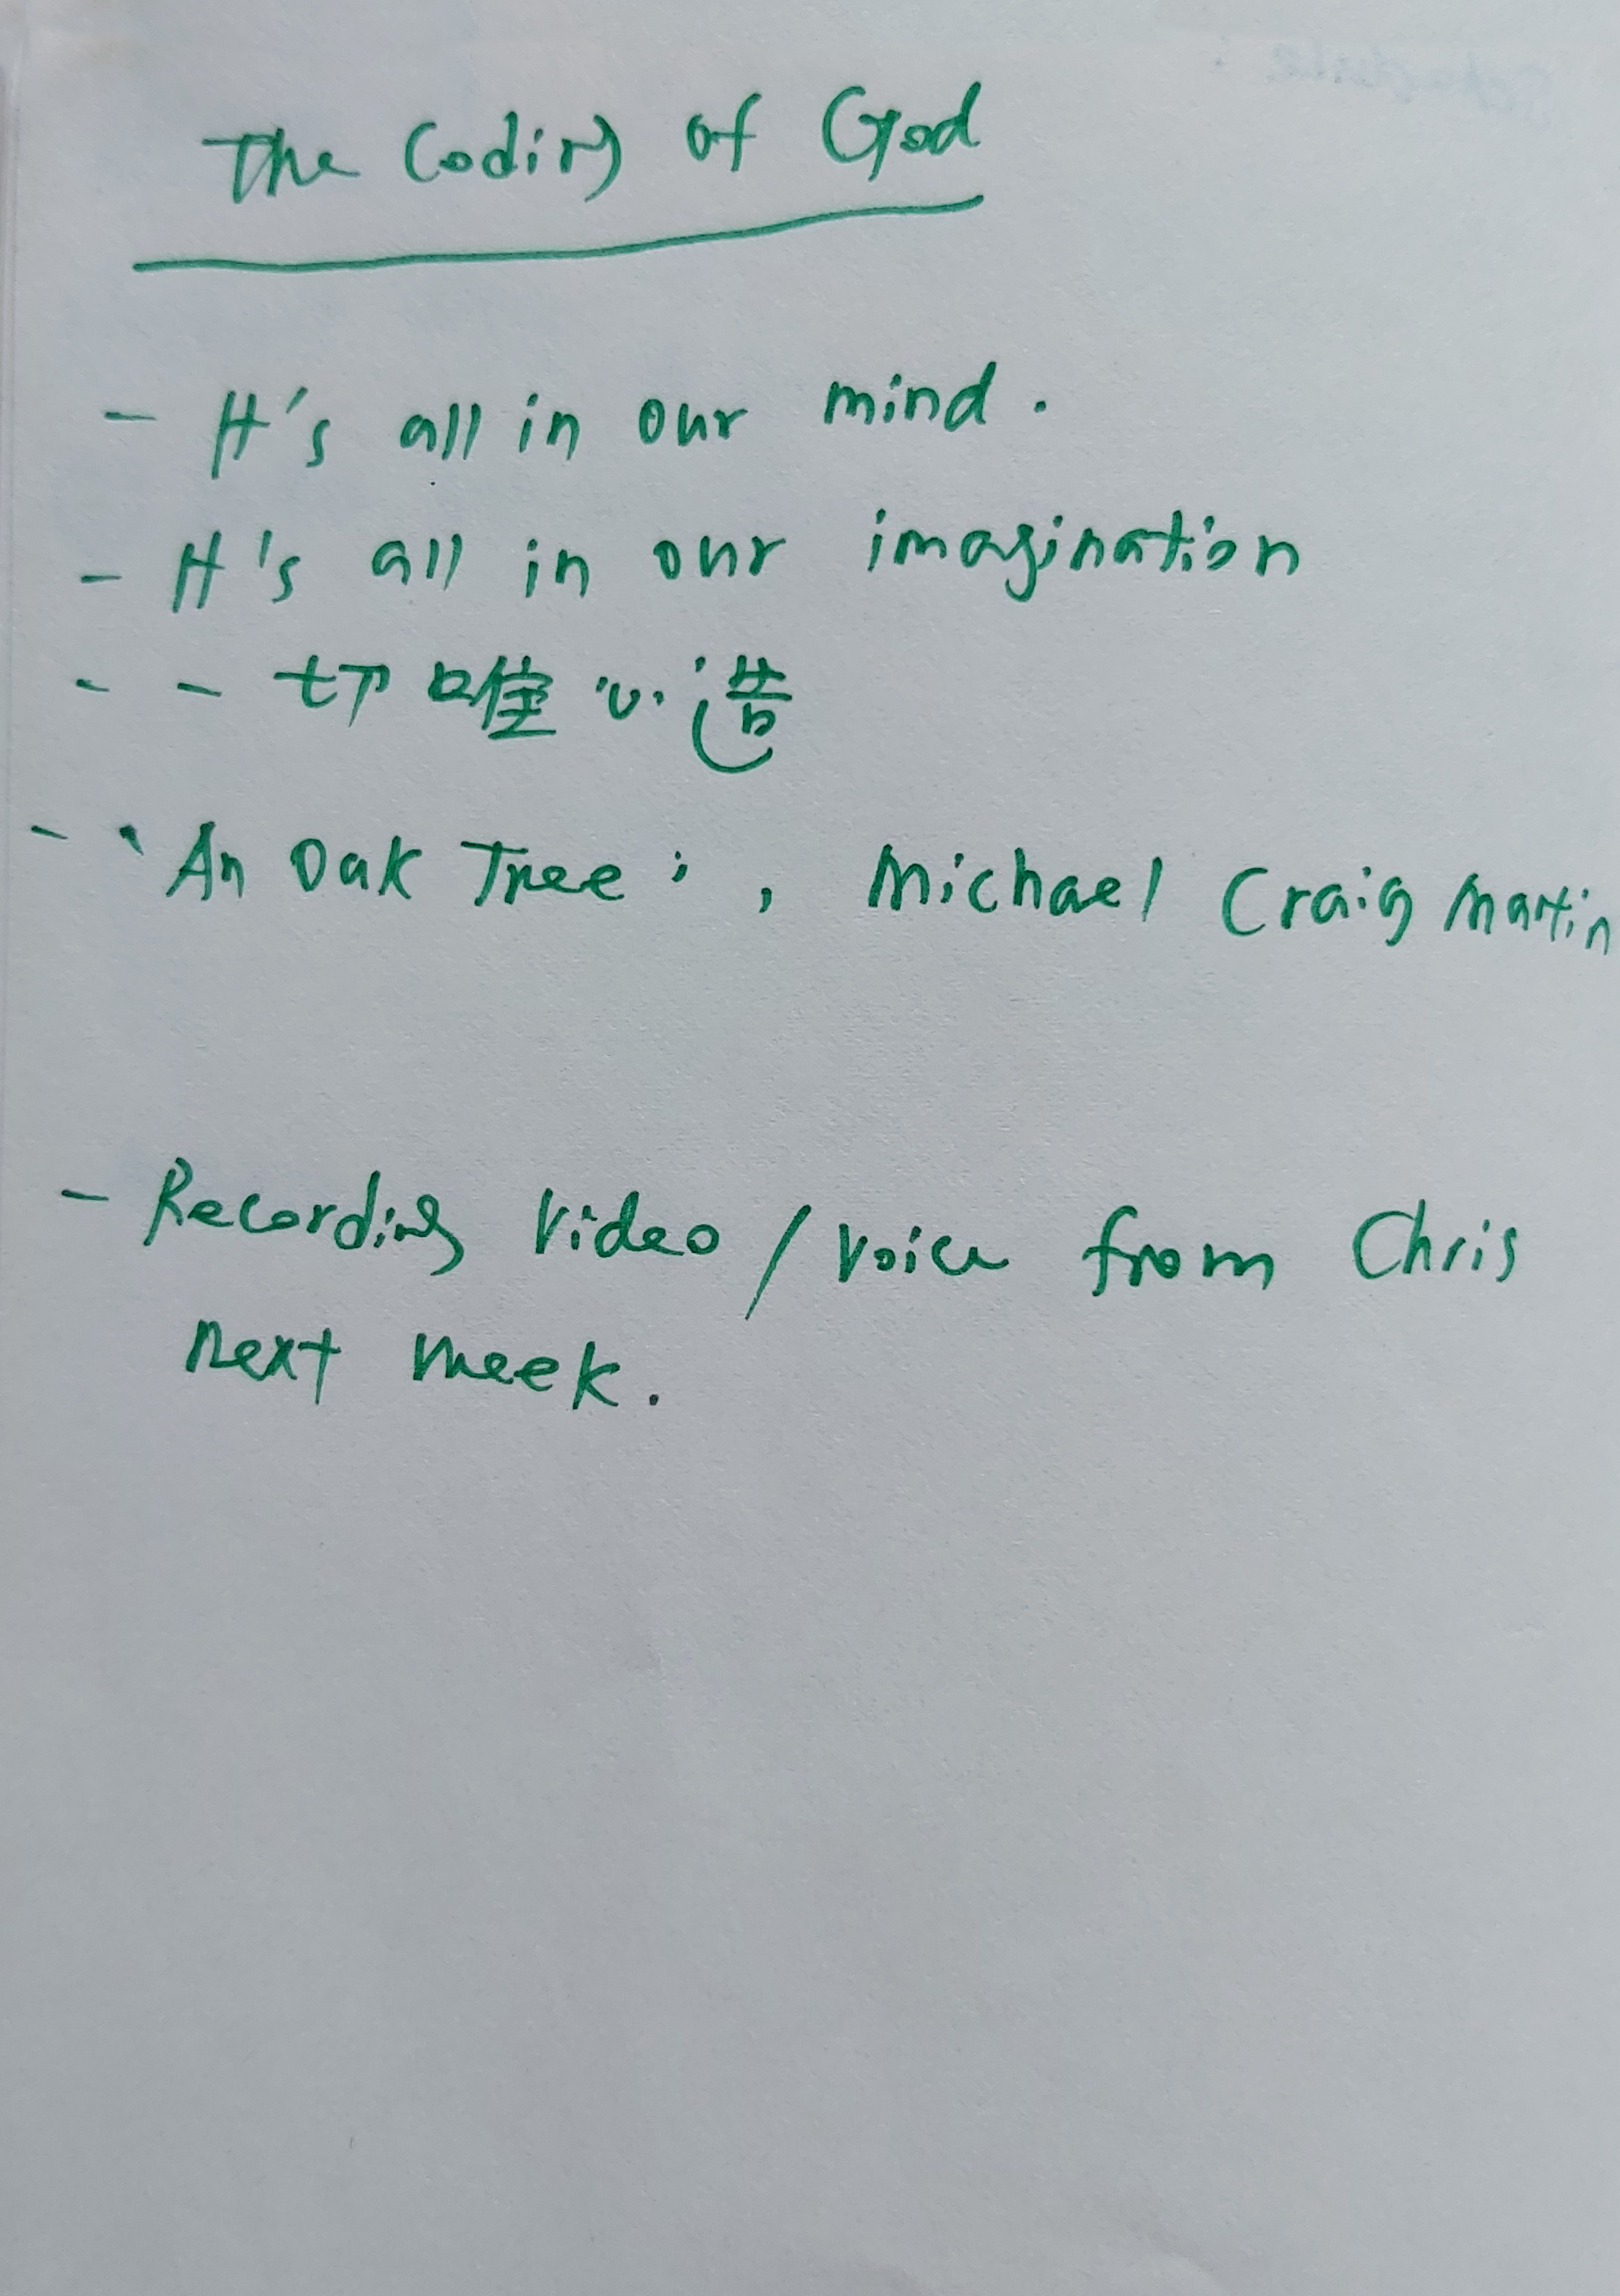 The Coding of God
- It's all in our mind.
- It's all in our imagination
- 一切唯心造
- 'An Oak Tree', Michael Craig Martin
- Recording Video / Voice from Chris
next week.